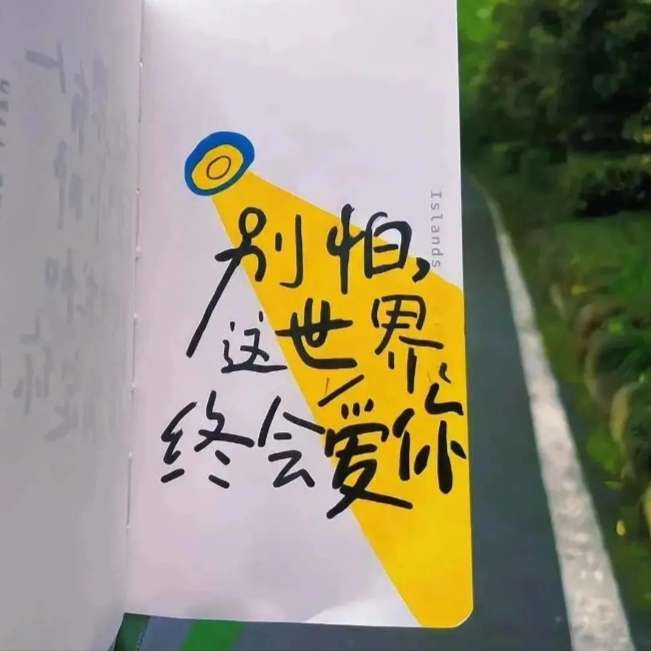 别怕,
这世界
终会爱你
Islands